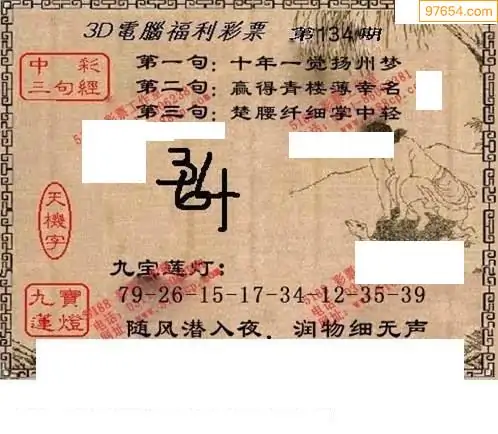 97654.com
3D電腦福利彩票 第134期
中彩
三句經
第一句：十年一觉扬州梦
第二句：赢得青楼薄幸名
第三句：楚腰纤细掌中轻
天機字
九宝莲灯：
79-26-15-17-34 12-35-39
九寶
蓮燈
随风潜入夜．润物细无声